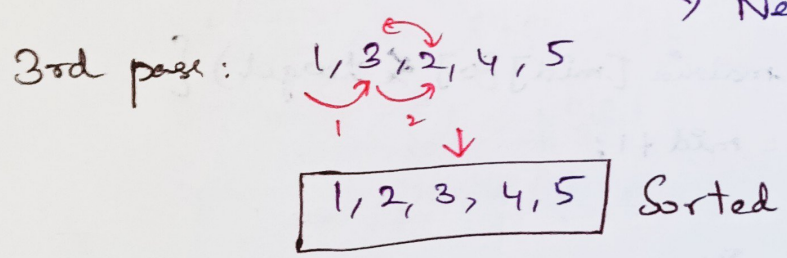 Ne
3rd pass: 1, 3, 2, 4, 5
1 2
1, 2, 3, 4, 5 Sorted